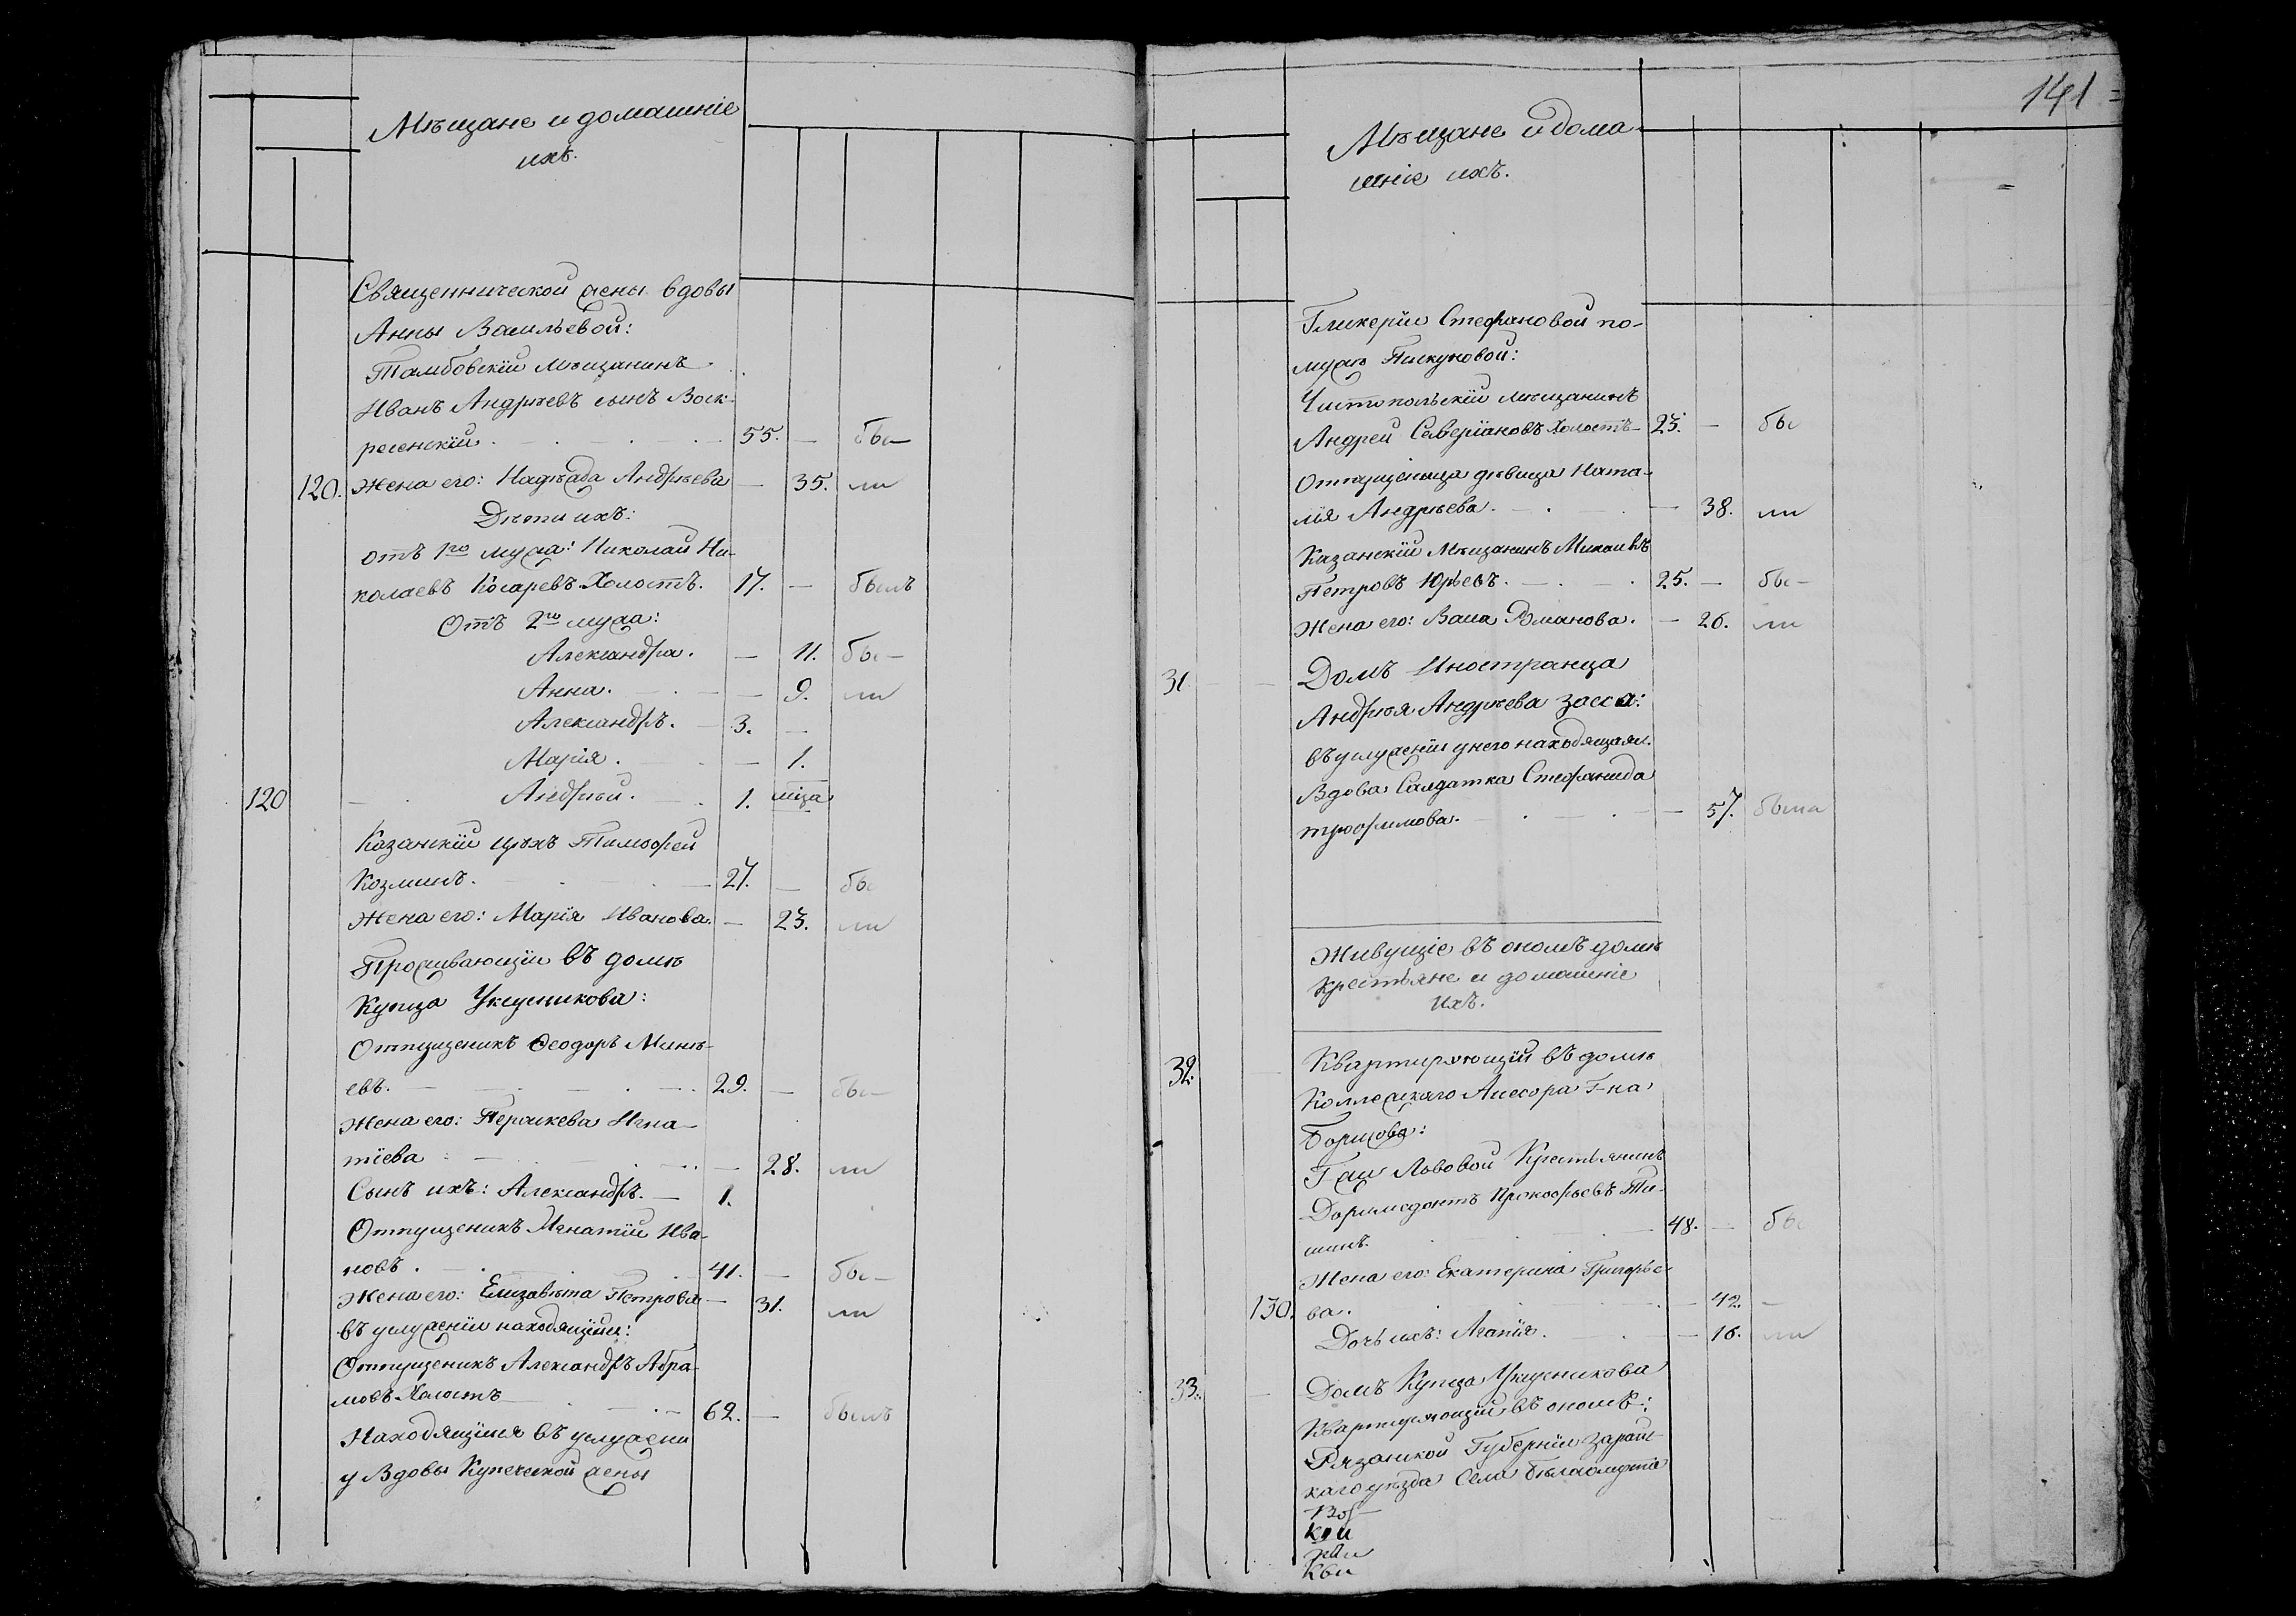 Мѣщане и домашніе
ихъ.
Священнической жены вдовы
Анны Васильевой:
Тамбовскій Мѣщанинъ
Иванъ Андреевъ сынъ Воск-
ресенскій. 55. — бы—
120. Жена его: Надѣжда Андреева — 35. ли
Дѣти ихъ:
отъ 1го мужа: Николай Ни-
колаевъ Косаревъ Холостъ. 17. — былъ
Отъ 2го мужа:
Александра. — 11. бы—
Анна. — 9. ли
Александръ. 3. —
Марія. — 1.
120 Андрей. 1.
Казанскій цѣхъ Тимофей
Козминъ. 27. — бы
Жена его: Марія Иванова. — 23. ли
Проживающіи въ домѣ
Купца Уксусникова:
Отпущеникъ Ѳеодоръ Минѣ-
евъ. 29. — бы—
Жена его: Игна-
тіева — 28. ли
Сынъ ихъ: Александръ. — 1.
Отпущеникъ Игнатій Ива-
новъ. 41. — бы—
Жена его: Елизавѣта Петрова — 31. ли
въ услуженіи находящіися:
Отпущеникъ Александръ Абра-
мовъ Холостъ 62. — былъ
Находящіися въ услужени
у Вдовы Купеческой жены
141
Мѣщане и дома-
шніе ихъ.
Гликеріи Стефановой по-
мужѣ Пискуновой:
Чистопольскій мѣщанинъ
Андрей Северіановъ Холостъ— 23. — бы
Отпущеница дѣвица Ната-
лія Андреева. — 38. ли
Казанскій Мѣщанинъ
Петровъ Юрьевъ. 25. — бы—
Жена его: Васа Романова. — 26. ли
31 Домъ Иностранца
Андрея Андреева Засса:
въ услуженіи у него находящаяс.
Вдова Салдатка Стефанида
трофимова. — 57. была
Живущіе въ ономъ домѣ
Крестьяне и домашніе
ихъ.
32. Квартирующіи въ домѣ
Коллежскаго Асесора Г-на
Борисова:
Г-жи Львовой Крестьянинъ
Доримедонтъ Прокофьевъ Ти-
шинъ. 48. — бы
Жена его: Екатерина Григорье-
130. ва. — 42. —
Дочь ихъ: Агапія. — 16. ли
33. Домъ Купца Уксусникова
Квартирующіи въ ономъ:
Рязанской Губерніи Зарайс-
каго уѣзда Села